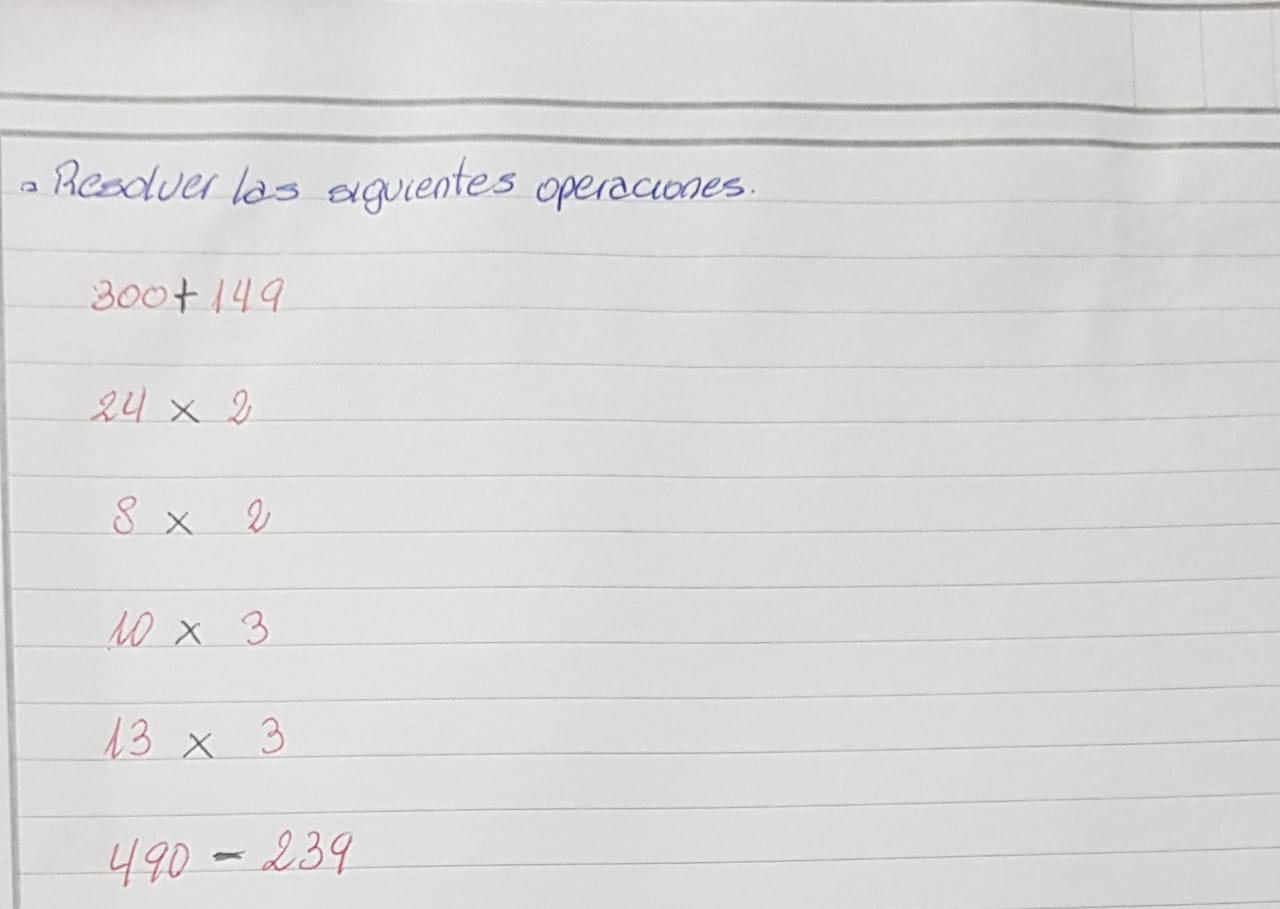 Resolver las siguientes operaciones.
300 + 149
24 x 2
8 x 2
10 x 3
13 x 3
490 - 239